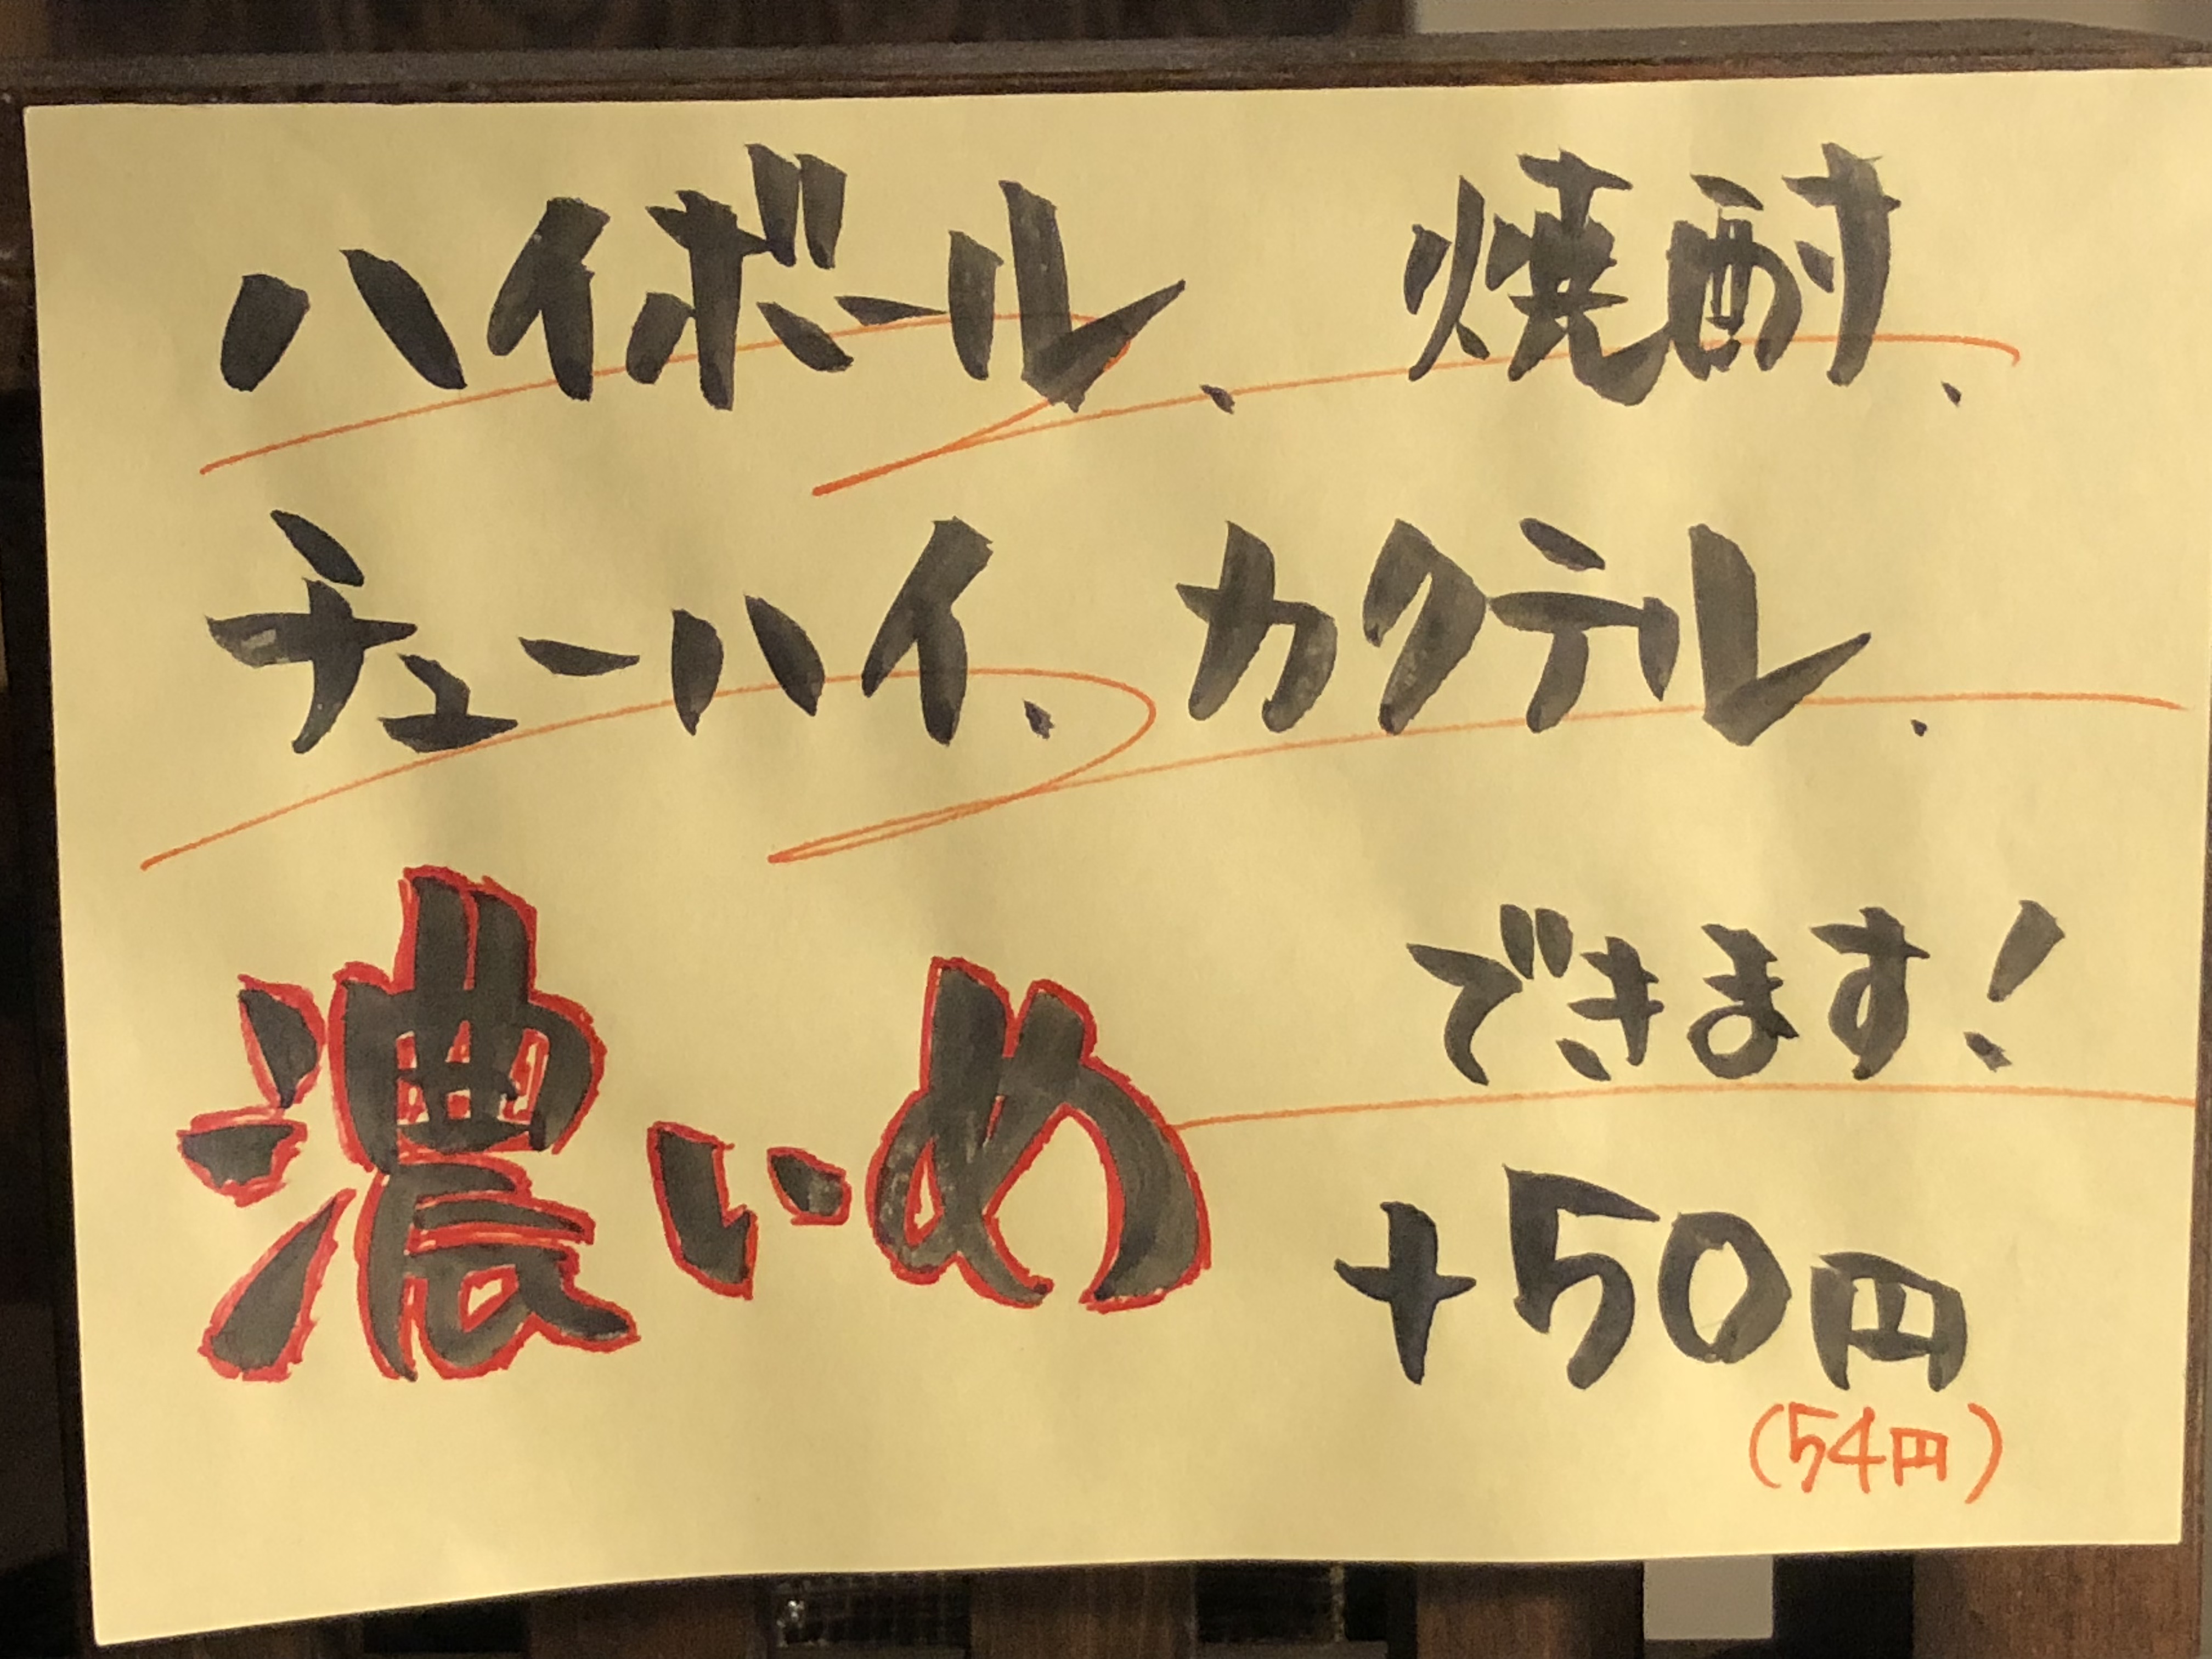 ハイボール、焼酎、
チューハイ、カクテル、
濃いめ できます!
+50円
(54円)